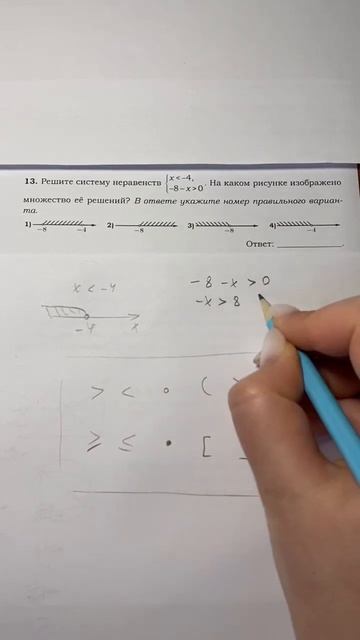 13. Решите систему неравенств { x < −4, −8 − x > 0. На каком рисунке изображено
множество её решений? В ответе укажите номер правильного вариан-
та.
1) −8 −4 2) −8 3) −8 4) −4
Ответ: ____________.
x < −4
−8 − x > 0
−x > 8
−4 x
> < ∘ (
≥ ≤ • [